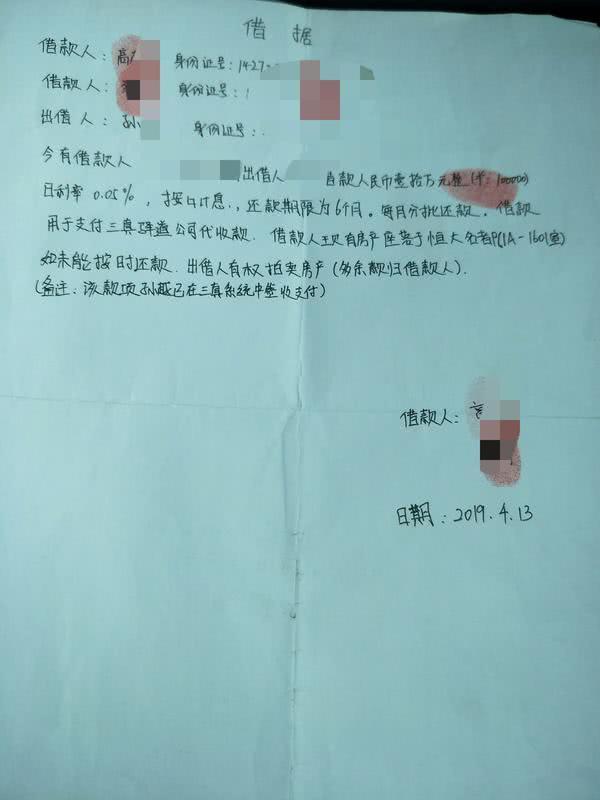 借 据
借款人：高 身份证号：1427
借款人： 身份证号：1
出借人：孙 身份证号：
今有借款人 出借人 首款人民币壹拾万元整（￥：100000）
日利率 0.05%，按日计息.，还款期限为6个月。每月分批还款。借款
用于支付三真 公司代收款. 借款人现有房产座落于恒大名都 1A-1601室
如未能按时还款.出借人有权拍卖房产（多余款归借款人）.
（备注：该款项孙越已在三真系统中签收支付）
借款人：
日期：2019.4.13